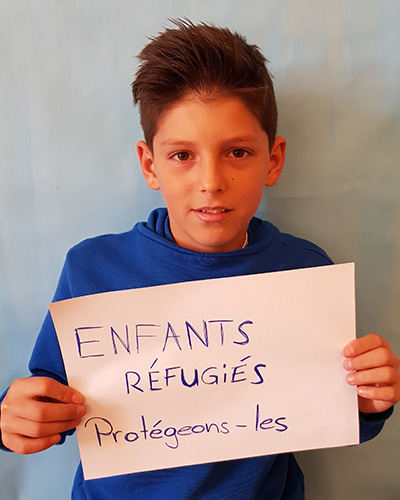 ENFANTS
RÉFUGIÉS
Protégeons-les